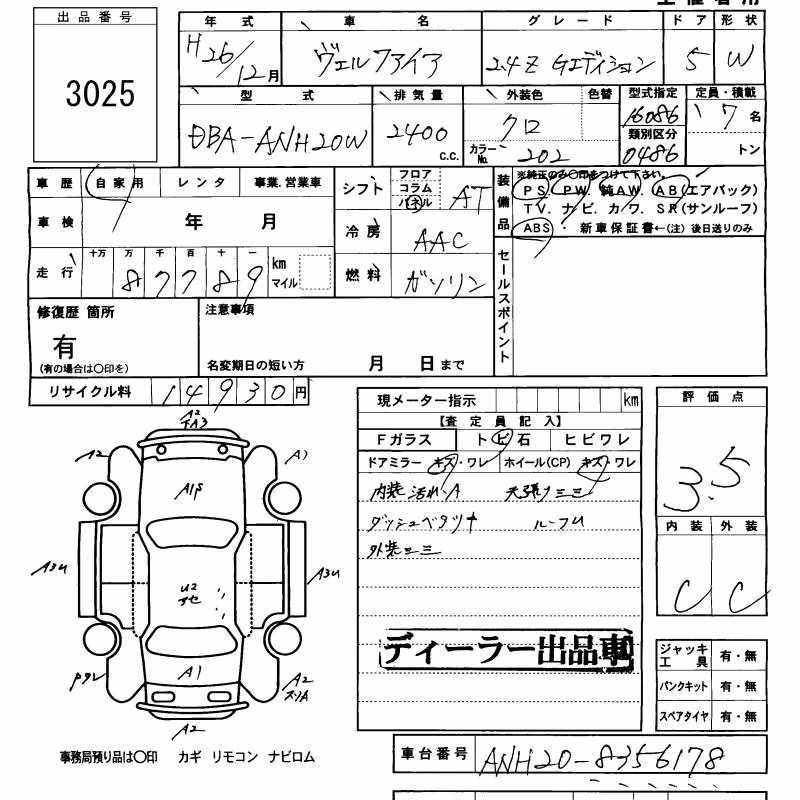 出品番号
3025
年式 車名 グレード ドア 形状
H26/12月 ヴェルファイア 2.4Z Gエディション 5 W
型式 排気量 外装色 色替 型式指定 定員・積載
DBA-ANH20W 2400 c.c. クロ 16086 7名
カラーNo. 202 類別区分 0486 トン
車歴 自家用 レンタ 事業.営業車
車検 年 月
走行 十万 万 千 百 十 一
87789 km マイル
シフト フロア コラム パネル AT
冷房 AAC
燃料 ガソリン
装備品
※純正のみ〇印をつけて下さい。
PS. PW. 純AW. AB(エアバック)
TV. ナビ. カワ. SR(サンルーフ)
ABS・新車保証書←(注)後日送りのみ
セールスポイント
修復歴 箇所
有
(有の場合は〇印を)
注意事項
名変期日の短い方 月 日まで
リサイクル料 14930円
現メーター指示 km
【査定員記入】
Fガラス トビ石 ヒビワレ
ドアミラー キズ・ワレ ホイール(CP) キズ・ワレ
内装 汚れ・A 天張リミミ
ダッシュベタツキ ルーフU
外装ミミ
ディーラー出品車
評価点
3.5
内装 外装
C C
ジャッキ工具 有・無
パンクキット 有・無
スペアタイヤ 有・無
A2
A2
A1
A1S
A3U
A3U
U2
アセ
A1
A2
スリA
A2
事務局預り品は〇印 カギ リモコン ナビロム
車台番号 ANH20-8356178